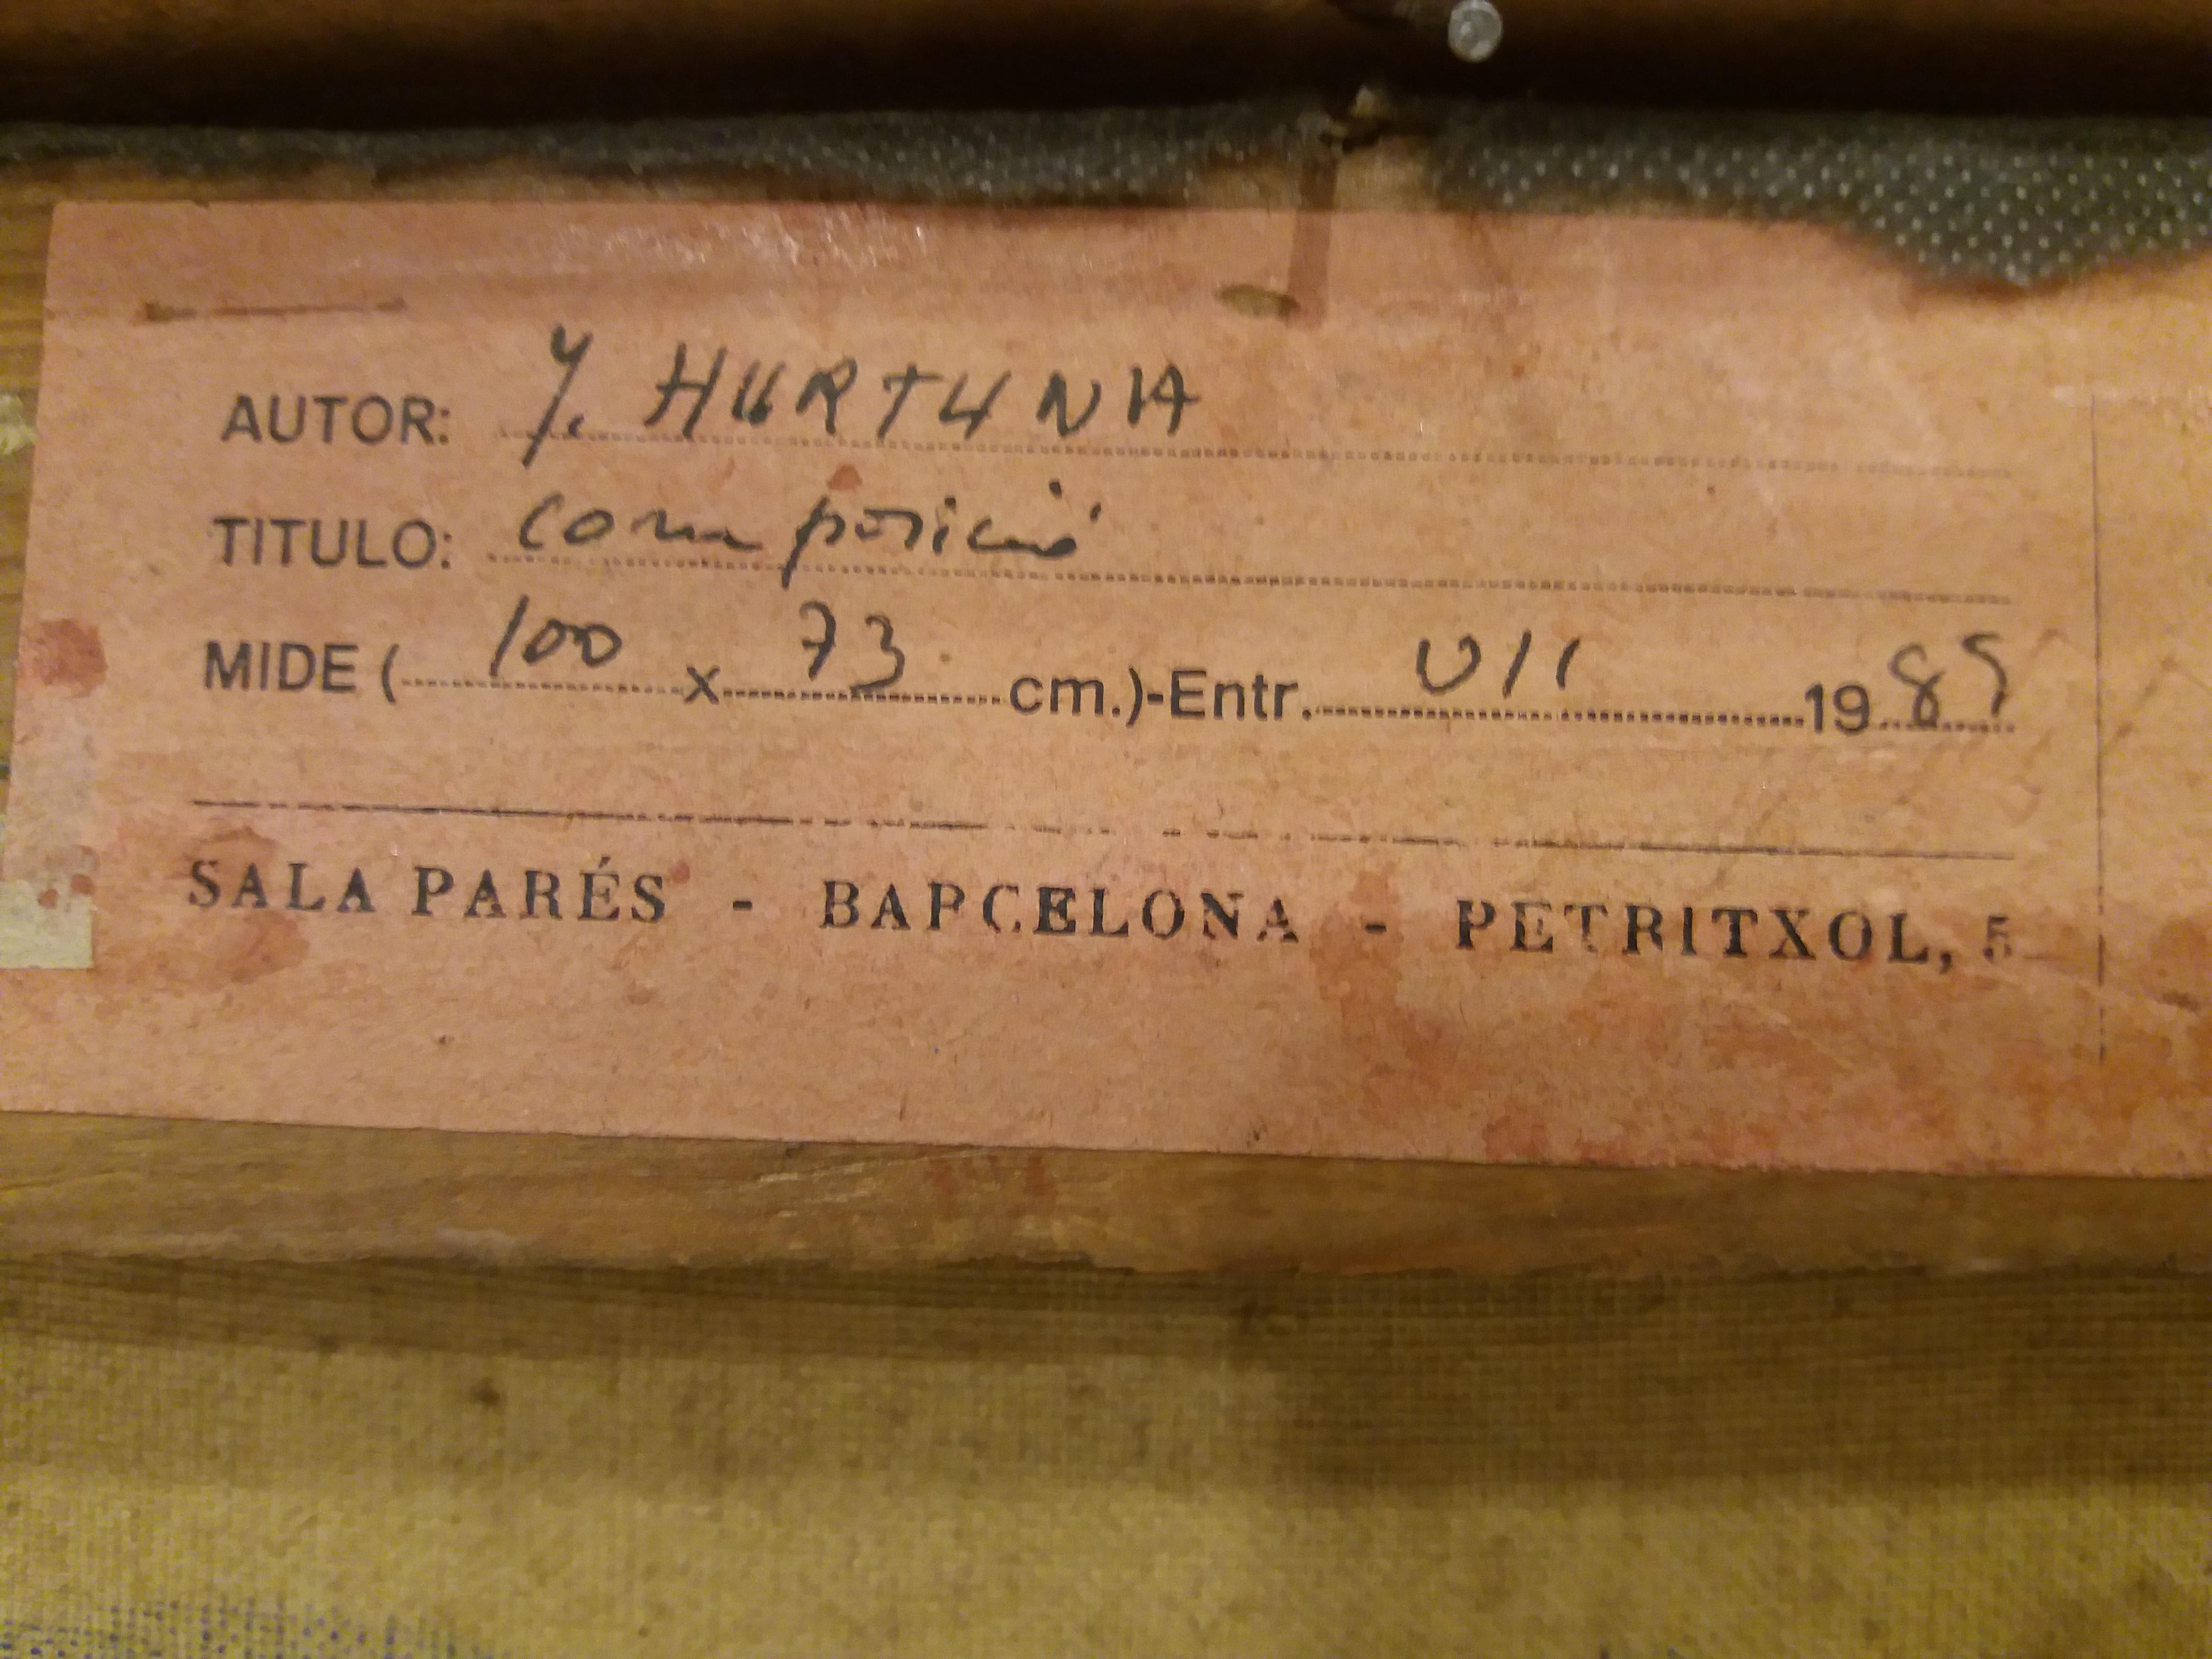 AUTOR: J. HURTUNA
TITULO: composició
MIDE ( 100 x 73 cm.)-Entr. VII 1985
SALA PARÉS - BARCELONA - PETRITXOL, 5